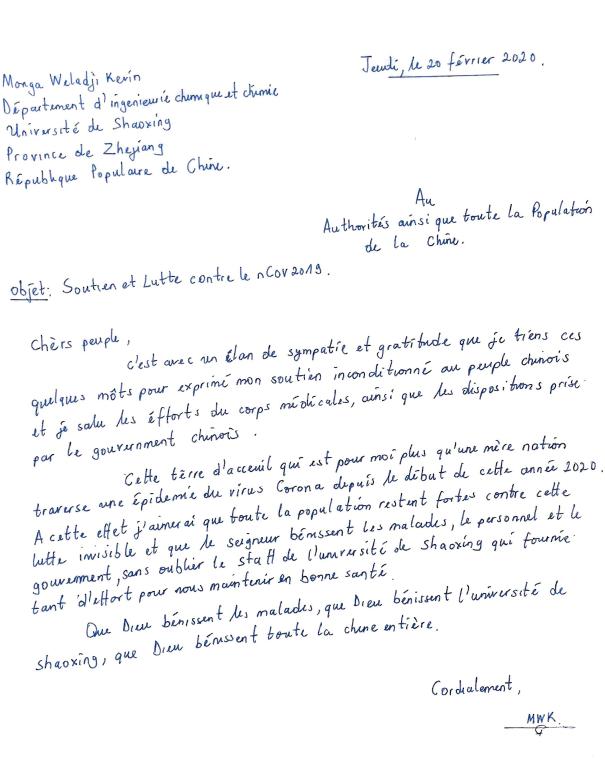 Jeudi, le 20 février 2020.
Monga Weladji Kevin
Département d'ingenieurie chimique et chimie
Université de Shaoxing
Province de Zhejiang
République Populaire de Chine.
Au
Authorités ainsi que toute la Population
de la Chine.
objet: Soutien et Lutte contre le nCov2019.
Chèrs peuple,
c'est avec un élan de sympatie et gratitude que je tiens ces
quelques môts pour exprimé mon soutien inconditionné au peuple chinois
et je salu les éfforts du corps médicales, ainsi que les dispositions prise
par le gouvernment chinois.
Cette tèrre d'acceuil qui est pour moi plus qu'une mère nation
traverse une épidemie du virus Corona depuis le début de cette année 2020.
A cette effet j'aimerai que toute la population restent fortes contre cette
lutte invisible et que le seigneur bénissent les malades, le personnel et le
gouvernment, sans oublier le staff de l'université de shaoxing qui fournie
tant d'effort pour nous maintenir en bonne santé.
Que Dieu bénissent les malades, que Dieu bénissent l'université de
shaoxing, que Dieu bénissent toute la chine entière.
Cordialement,
MWK.